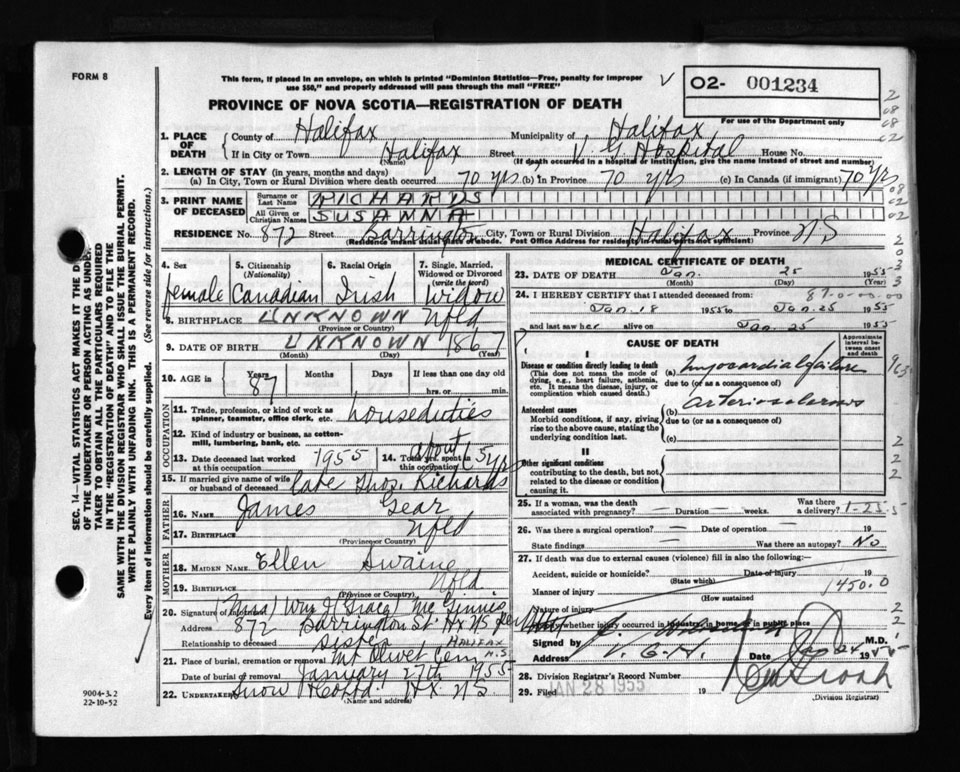 FORM 8
This form, if placed in an envelope, on which is printed "Dominion Statistics—Free, penalty for improper
use $50," and properly addressed will pass through the mail "FREE"
O2- 001234
For use of the Department only
PROVINCE OF NOVA SCOTIA—REGISTRATION OF DEATH
1. PLACE OF DEATH County of Halifax Municipality of Halifax
If in City or Town Halifax Street V. G Hospital House No.
(Name) (If death occurred in a hospital or institution, give the name instead of street and number)
2. LENGTH OF STAY (in years, months and days)
(a) In City, Town or Rural Division where death occurred 70 yrs (b) In Province 70 yrs (c) In Canada (if immigrant) 70 Yrs
3. PRINT NAME OF DECEASED Surname or Last Name RICHARDS
All Given or Christian Names SUSANNA
RESIDENCE No. 872 Street Barrington City, Town or Rural Division Halifax Province NS
(Residence means usual place of abode. Post Office Address for residents in rural parts not sufficient)
4. Sex female
5. Citizenship (Nationality) Canadian
6. Racial Origin Irish
7. Single, Married, Widowed or Divorced (write the word) Widow
8. BIRTHPLACE UNKNOWN Nfld
(Province or Country)
9. DATE OF BIRTH UNKNOWN 1867
(Month) (Day) (Year)
10. AGE in Years 87 Months Days If less than one day old
hrs. or min.
OCCUPATION
11. Trade, profession, or kind of work as
spinner, teamster, office clerk, etc. houseduties
12. Kind of industry or business, as cotton-
mill, lumbering, bank, etc.
13. Date deceased last worked
at this occupation 1955
14. Total yrs. spent in
this occupation about
15. If married give name of wife
or husband of deceased late Thos. Richards
FATHER
16. NAME James Gear
17. BIRTHPLACE Nfld
(Province or Country)
MOTHER
18. MAIDEN NAME Ellen Swaine
19. BIRTHPLACE Nfld
(Province or Country)
20. Signature of informant (Mrs) Wm H (Grace) Mc Ginnis
Address 872 Barrington St. Hx NS
Relationship to deceased Sister
HALIFAX
N.S
21. Place of burial, cremation or removal Mt Olivet Cem
Date of burial or removal January 27th 1955
22. Undertaker Snow & Co Ltd. Hx NS
(Name and address)
MEDICAL CERTIFICATE OF DEATH
23. DATE OF DEATH Jan. 25 1955
(Month) (Day)
24. I HEREBY CERTIFY that I attended deceased from:
Jan. 18 1955 to Jan. 25 1955
and last saw her alive on Jan. 25 1955
CAUSE OF DEATH
Approximate interval between onset and death
I
Disease or condition directly leading to death
(This does not mean the mode of
dying, e.g., heart failure, asthenia,
etc. It means the disease, injury, or
complication which caused death.)
(a) Myocardial failure
due to (or as a consequence of)
Antecedent causes
Morbid conditions, if any, giving
rise to the above cause, stating the
underlying condition last.
(b) arteriosclerosis
due to (or as a consequence of)
(c)
II
Other significant conditions
contributing to the death, but not
related to the disease or condition
causing it.
25. If a woman, was the death
associated with pregnancy? — Duration — weeks. Was there
a delivery?
26. Was there a surgical operation? — Date of operation — 19
State findings Was there an autopsy? No
27. If death was due to external causes (violence) fill in also the following:—
Accident, suicide or homicide? Date of injury 19
(State which)
Manner of injury 1450.0
(How sustained
Nature of injury
whether injury occurred in industry, in home or in public place
Signed by M.D.
Address V. G. H. Date 19
28. Division Registrar's Record Number
29. Filed JAN 28 1955 19
(Division Registrar)
SEC. 14—VITAL STATISTICS ACT MAKES IT THE
OF THE UNDERTAKER OR PERSON ACTING AS UNDER-
TAKER TO OBTAIN ALL THE PARTICULARS REQUIRED
IN THE "REGISTRATION OF DEATH" AND TO FILE THE
SAME WITH THE DIVISION REGISTRAR WHO SHALL ISSUE THE BURIAL PERMIT.
WRITE PLAINLY WITH UNFADING INK. THIS IS A PERMANENT RECORD.
Every item of information should be carefully supplied. (See reverse side for instructions.)
9004-3.2
22-10-52